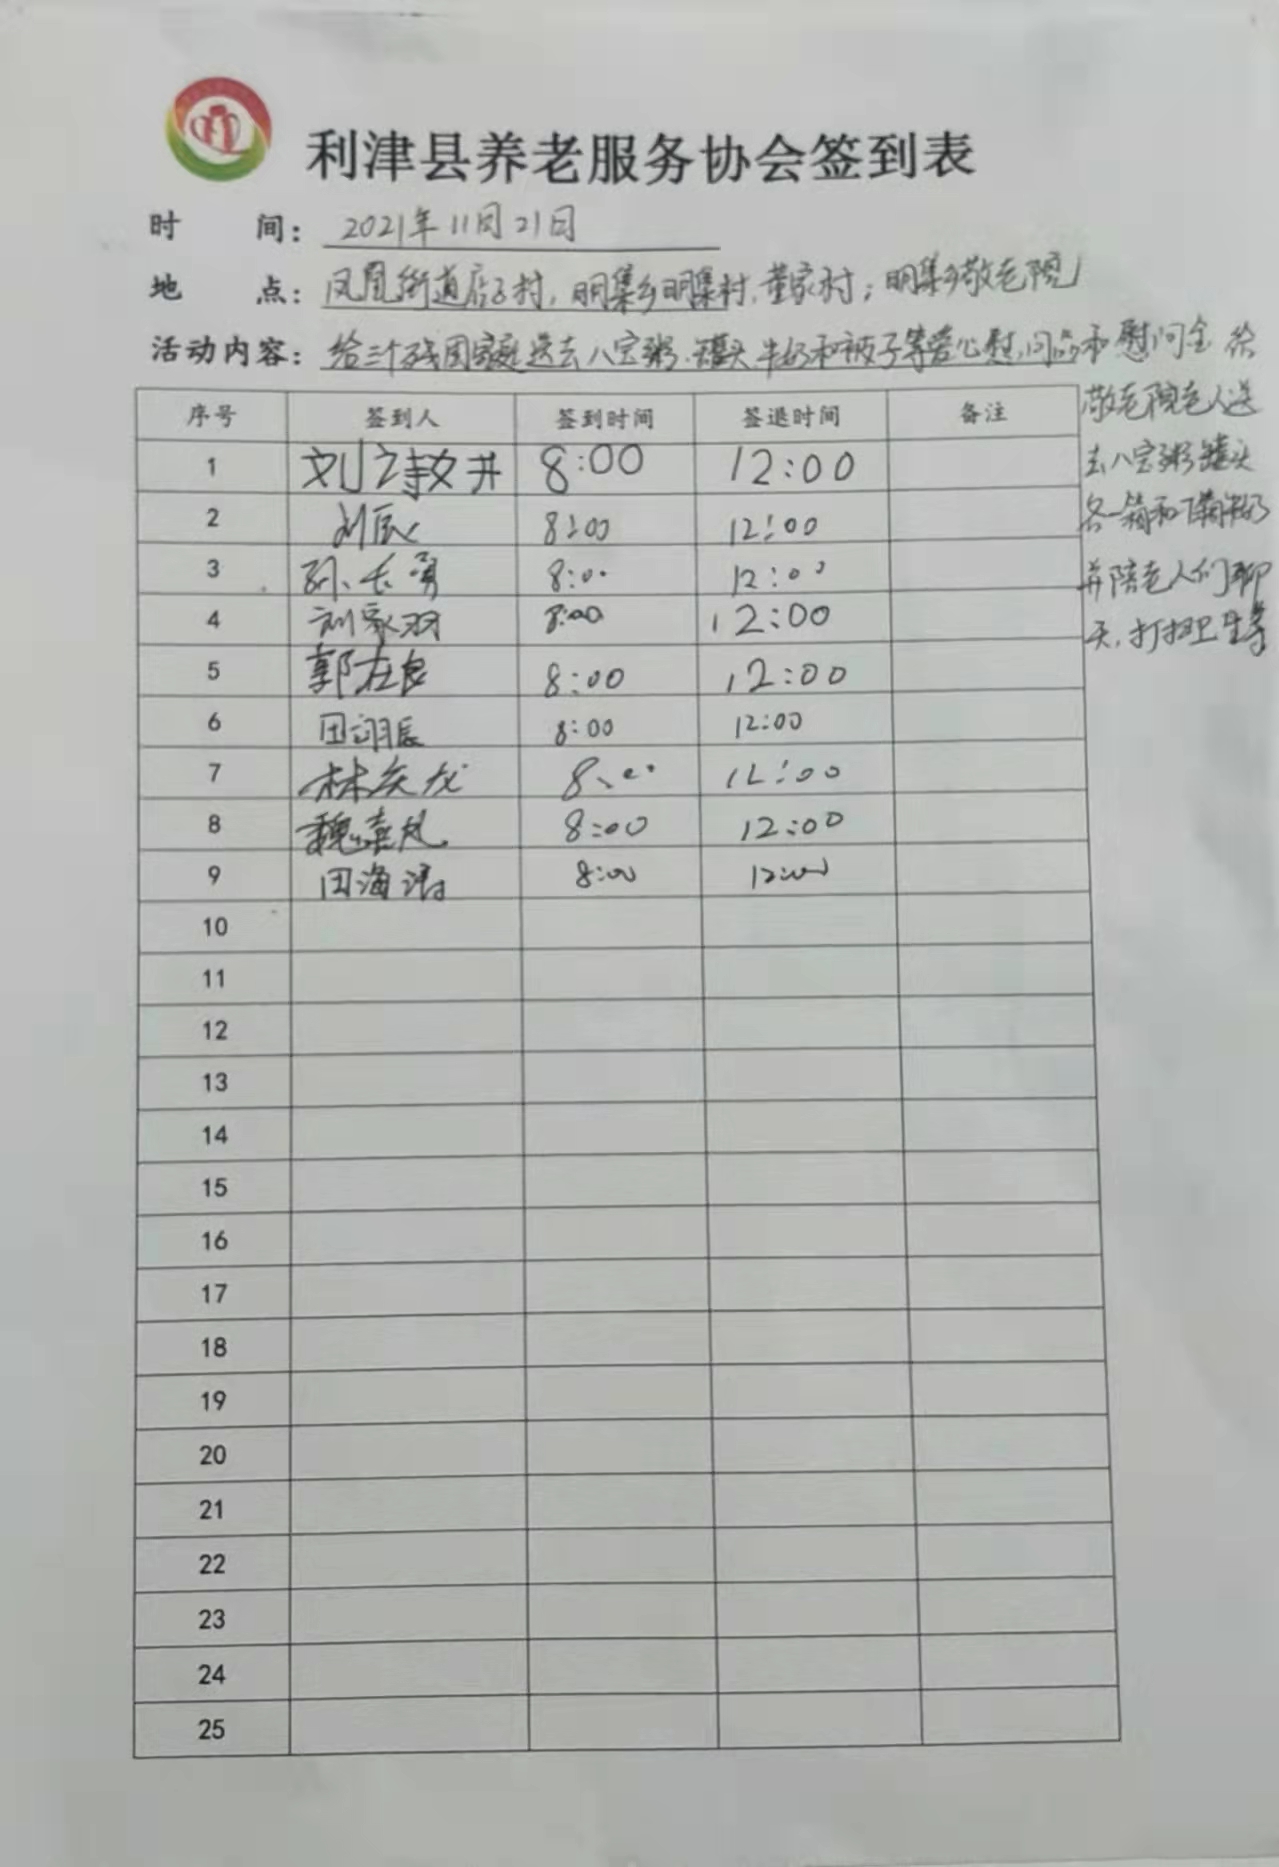 利津县养老服务协会签到表
时 间：2021年11月21日
地 点：凤凰街道店子村，明集乡明集村，董家村；明集乡敬老院
活动内容：给三个残困家庭送去八宝粥、罐头、牛奶和被子等爱心慰问品和慰问金 给
敬老院老人送
去八宝粥罐头
各一箱和 牛奶
并陪老人们聊
天，打扫卫生等
序号 签到人 签到时间 签退时间 备注
1 刘 8:00 12:00
2 刘辰 8:00 12:00
3 孙长勇 8:00 12:00
4 刘家羽 8:00 12:00
5 郭在良 8:00 12:00
6 田翊辰 8:00 12:00
7 林 8:00 12:00
8 魏 8:00 12:00
9 田海涛 8:00 12:00
10
11
12
13
14
15
16
17
18
19
20
21
22
23
24
25